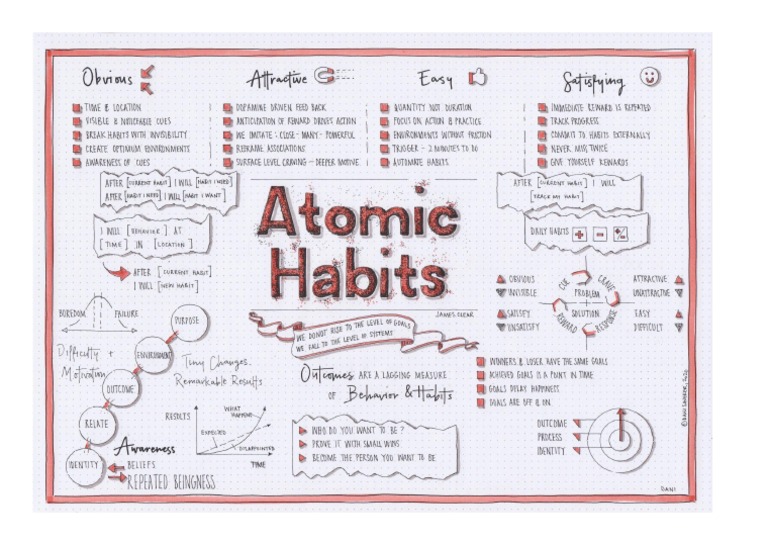 Obvious
TIME & LOCATION
VISIBLE & NOTICEABLE CUES
BREAK HABITS WITH INVISIBILITY
CREATE OPTIMUM ENVIRONMENTS
AWARENESS OF CUES
Attractive
DOPAMINE DRIVEN FEED BACK
ANTICIPATION OF REWARD DRIVES ACTION
WE IMITATE : CLOSE - MANY - POWERFUL
REFRAME ASSOCIATIONS
SURFACE LEVEL CRAVING - DEEPER MOTIVE
Easy
QUANTITY NOT DURATION
FOCUS ON ACTION & PRACTICE
ENVIRONMENTS WITHOUT FRICTION
TRIGGER - 2 MINUTES TO DO
AUTOMATE HABITS
Satisfying
IMMEDIATE REWARD IS REPEATED
TRACK PROGRESS
COMMIT TO HABITS EXTERNALLY
NEVER MISS TWICE
GIVE YOURSELF REWARDS
AFTER [CURRENT HABIT] I WILL [HABIT I NEED]
AFTER [HABIT I NEED] I WILL [HABIT I WANT]
I WILL [BEHAVIOR] AT
[TIME] IN [LOCATION]
AFTER [CURRENT HABIT]
I WILL [NEW HABIT]
Atomic
Habits
JAMES CLEAR
WE DO NOT RISE TO THE LEVEL OF GOALS
WE FALL TO THE LEVEL OF SYSTEMS
AFTER [CURRENT HABIT] I WILL
[TRACK MY HABIT]
DAILY HABITS + - +/-
OBVIOUS
INVISIBLE
SATISFY
UNSATISFY
CUE
CRAVE
PROBLEM
SOLUTION
REWARD
RESPONSE
ATTRACTIVE
UNATRACTIVE
EASY
DIFFICULT
BOREDOM
FAILURE
Difficulty +
Motivation
PURPOSE
ENVIRONMENT
OUTCOME
RELATE
IDENTITY
Tiny Changes.
Remarkable Results
RESULTS
WHAT
HAPPENS
EXPECTED
DISAPPOINTED
TIME
Awareness
BELIEFS
REPEATED BEINGNESS
Outcomes ARE A LAGGING MEASURE
OF Behavior & Habits
WHO DO YOU WANT TO BE ?
PROVE IT WITH SMALL WINS
BECOME THE PERSON YOU WANT TO BE
WINNERS & LOSER HAVE THE SAME GOALS
ACHIEVED GOALS IS A POINT IN TIME
GOALS DELAY HAPPINESS
GOALS ARE OFF & ON
OUTCOME
PROCESS
IDENTITY
DANI